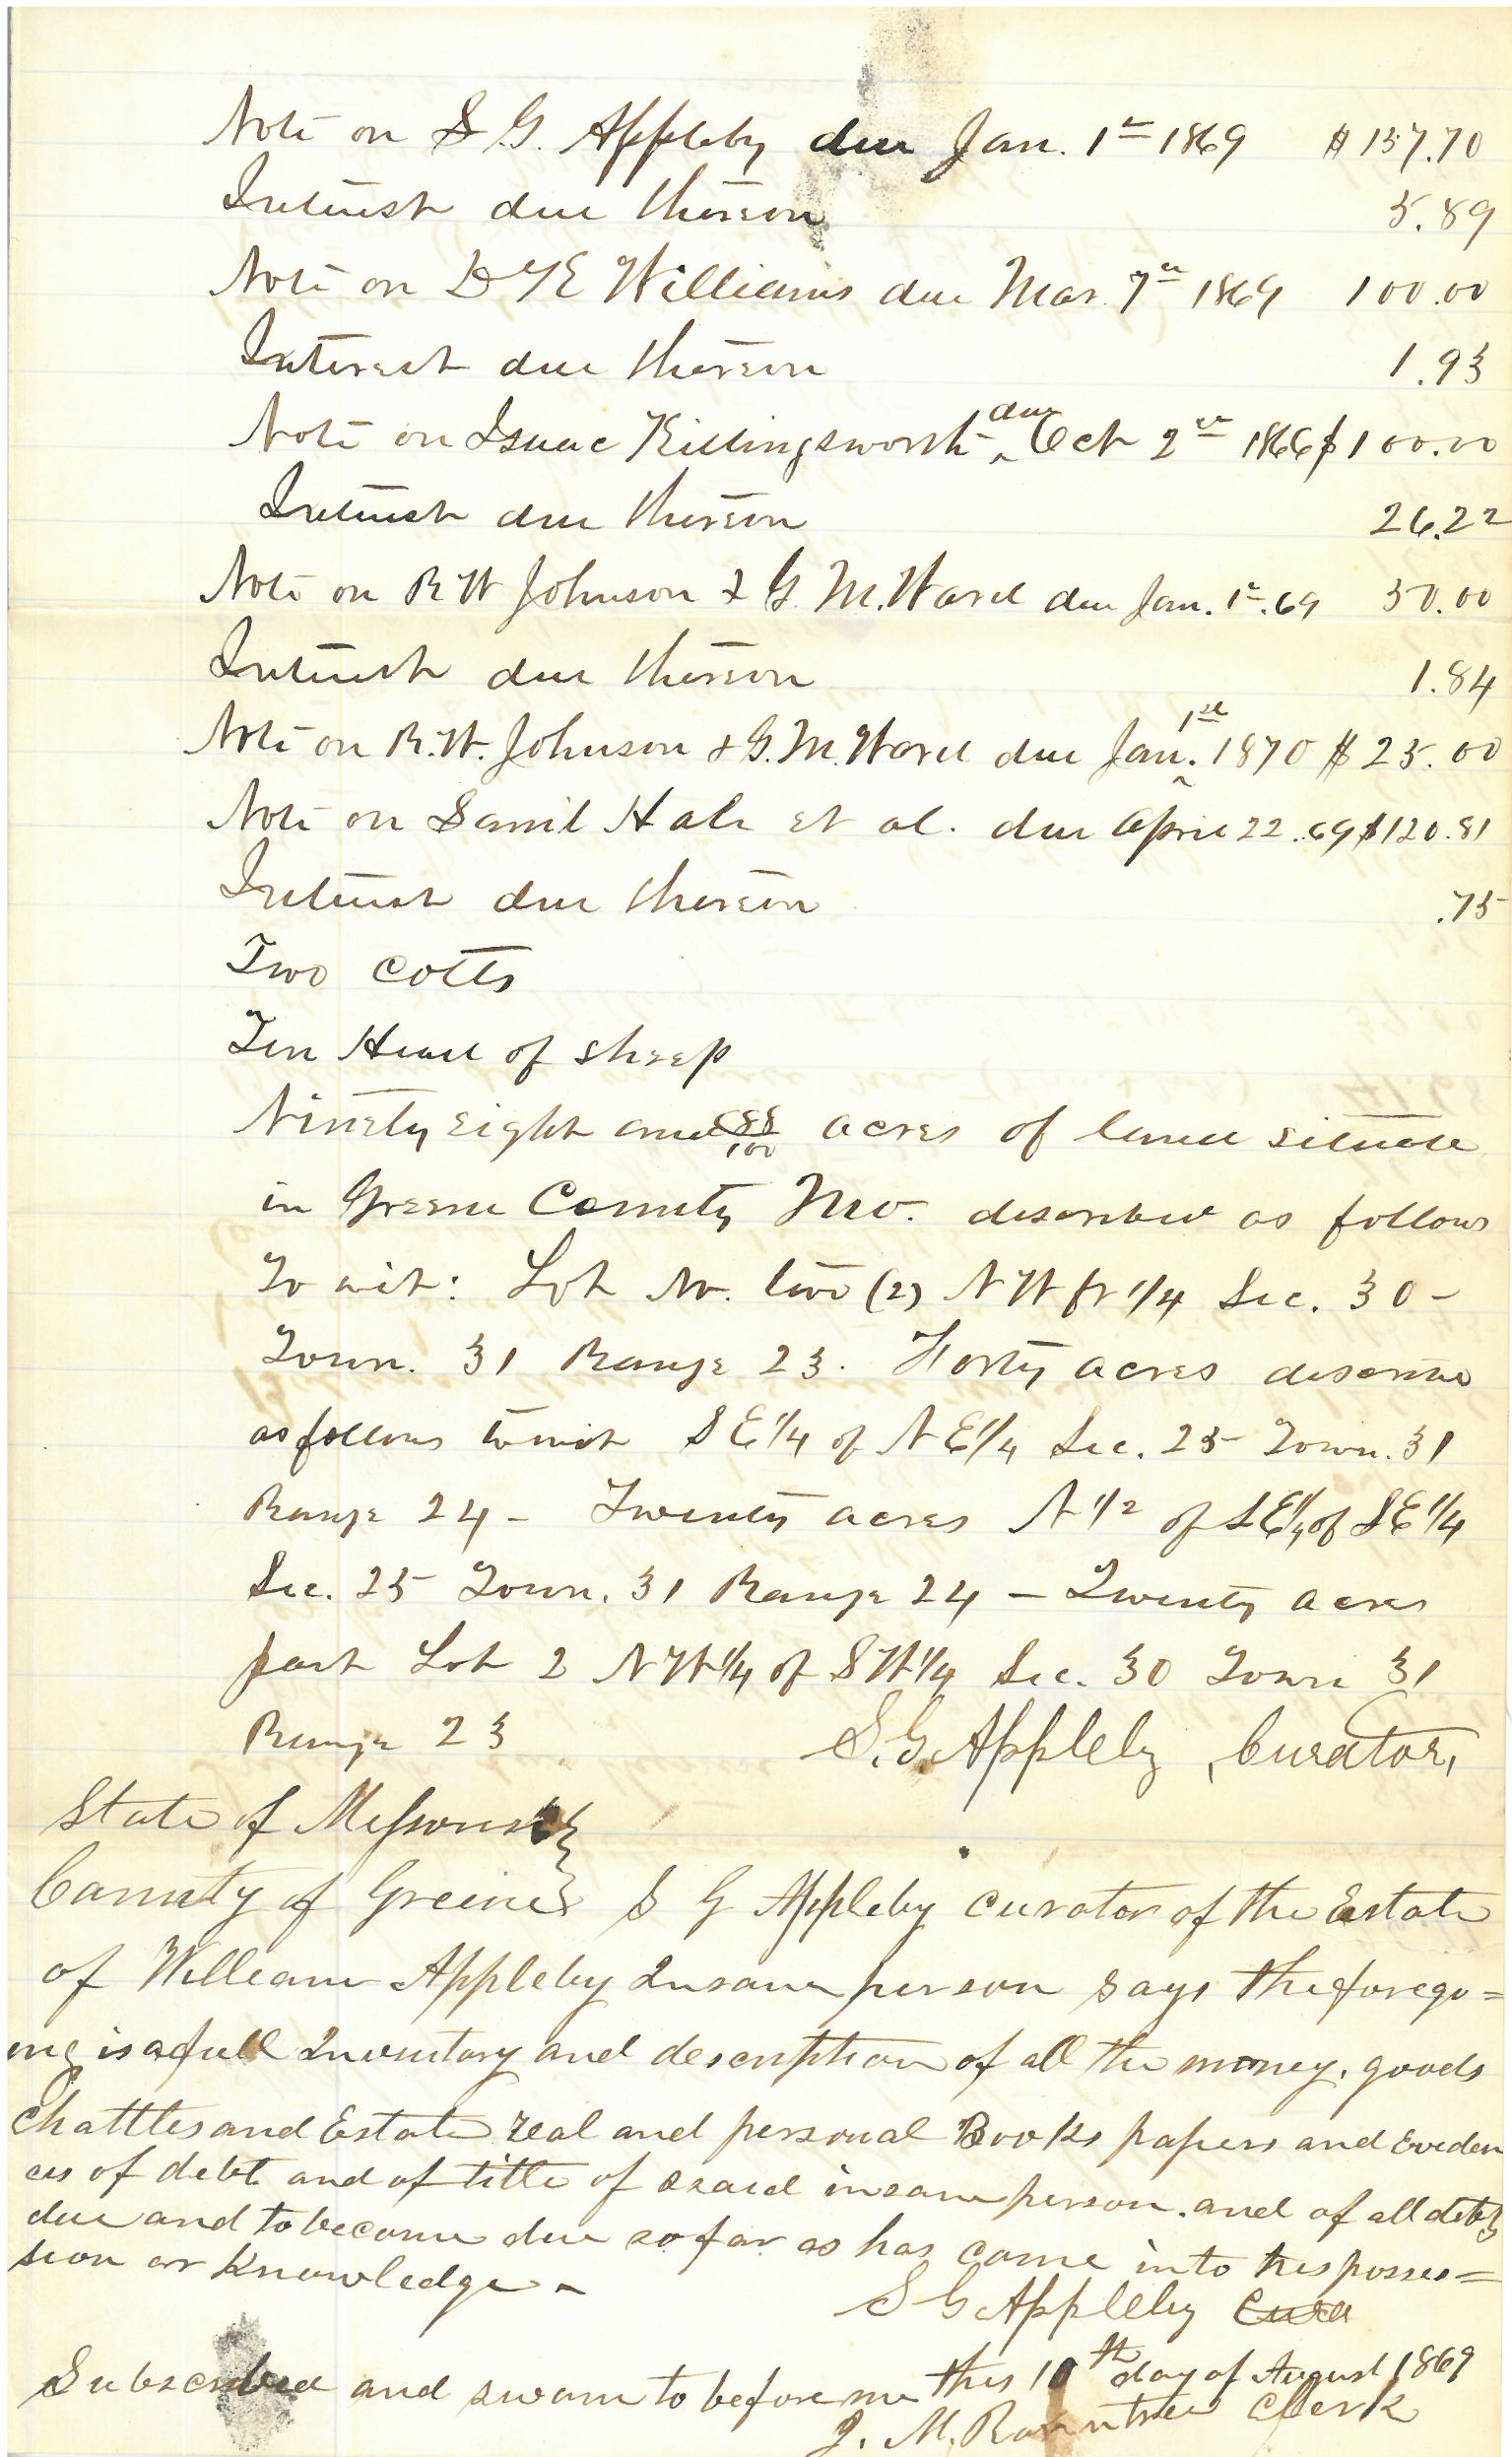 Note on S. G. Appleby due Jan. 1st 1869 $ 157.70
Interest due thereon 5.89
Note on D Y E Williams due Mar. 7th 1869 100.00
Interest due thereon 1.93
Note on Isaac Killingsworth due Oct 2nd 1866 $100.00
Interest due thereon 26.22
Note on R W Johnson & G. M. Ward due Jan. 1st. 69 50.00
Interest due thereon 1.84
Note on R. W. Johnson & G. M. Ward due Jan. 1st 1870 $ 25.00
Note on Saml Hale et al. due April 22. 69 $120.81
Interest due thereon .75
Two Colts
Ten Head of sheep
Ninety eight and 88/100 acres of land situate
in Greene County Mo. described as follows
To wit: Lot No. two (2) N W fr 1/4 Sec. 30 -
Town. 31 Range 23. Forty acres described
as follows to wit S E 1/4 of N E 1/4 Sec. 25 Town. 31
Range 24 - Twenty acres N 1/2 of S E 1/4 of S E 1/4
Sec. 25 Town. 31 Range 24 - Twenty acres
part Lot 2 N W 1/4 of S W 1/4 Sec. 30 Town 31
Range 23 S. G. Appleby, Curator,
State of Missouri }
County of Greene } S G Appleby Curator of the Estate
of William Appleby Insane person says the forego=
ing is a full Inventory and description of all the money, goods
Chattles and Estate real and personal Books papers and Eviden
ces of debt and of title of said insane person. and of all debts
due and to become due so far as has come into his posses=
sion or Knowledge -
S G Appleby Cura
Subscribed and sworn to before me this 10th day of August 1869
J. M. Rountree Clerk